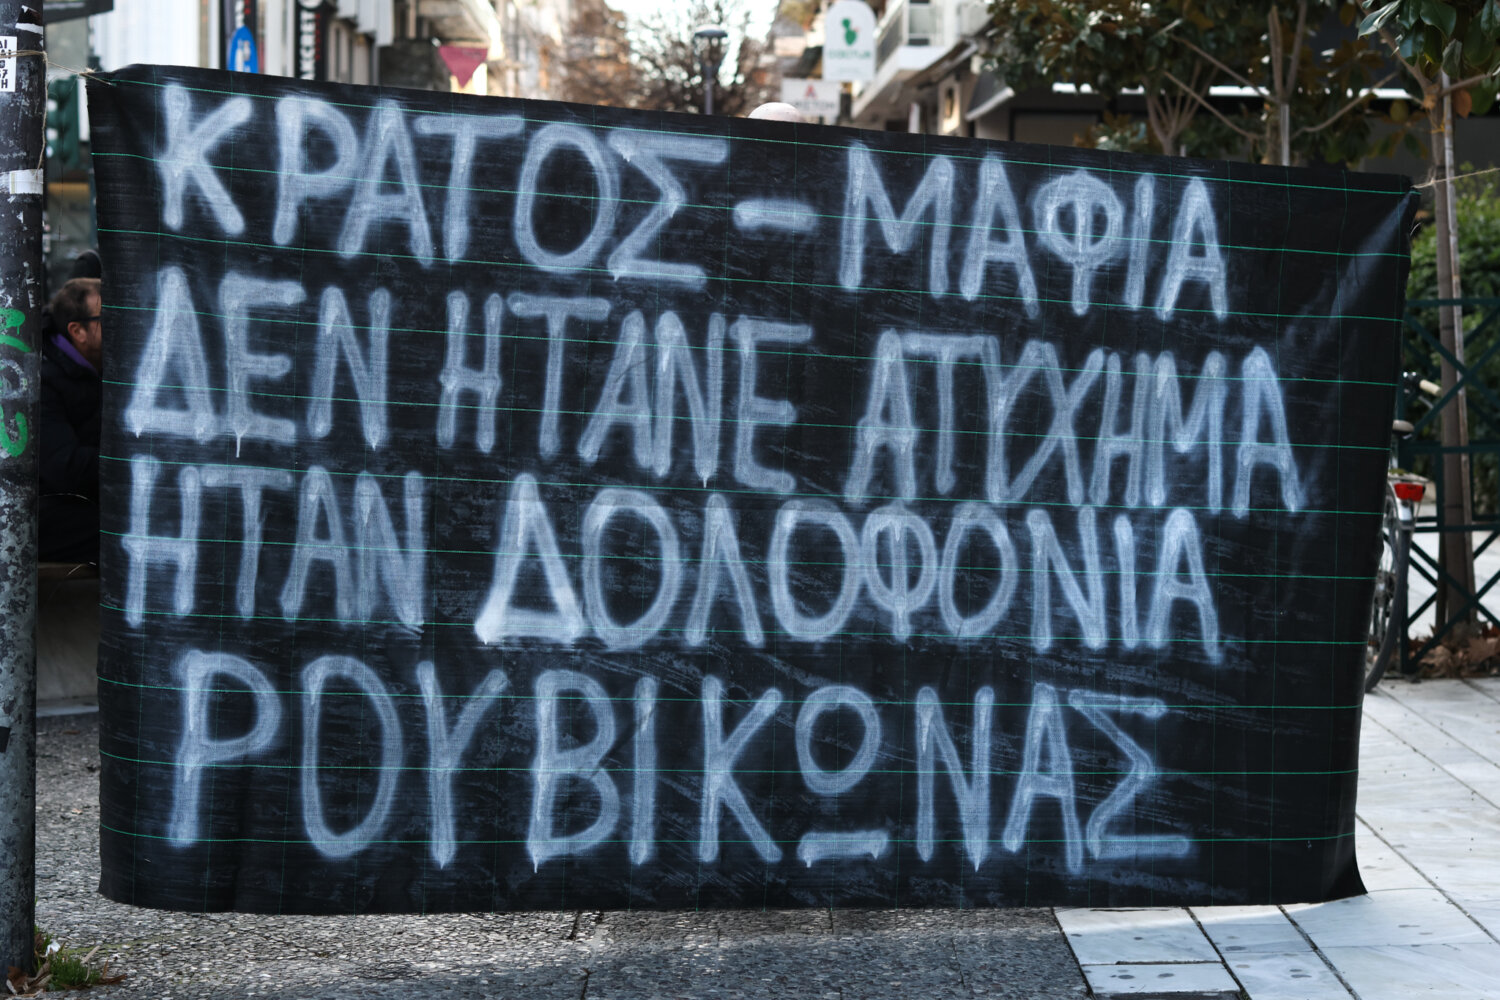 ΚΡΑΤΟΣ - ΜΑΦΙΑ
ΔΕΝ ΗΤΑΝΕ ΑΤΥΧΗΜΑ
ΗΤΑΝ ΔΟΛΟΦΟΝΙΑ
ΡΟΥΒΙΚΩΝΑΣ